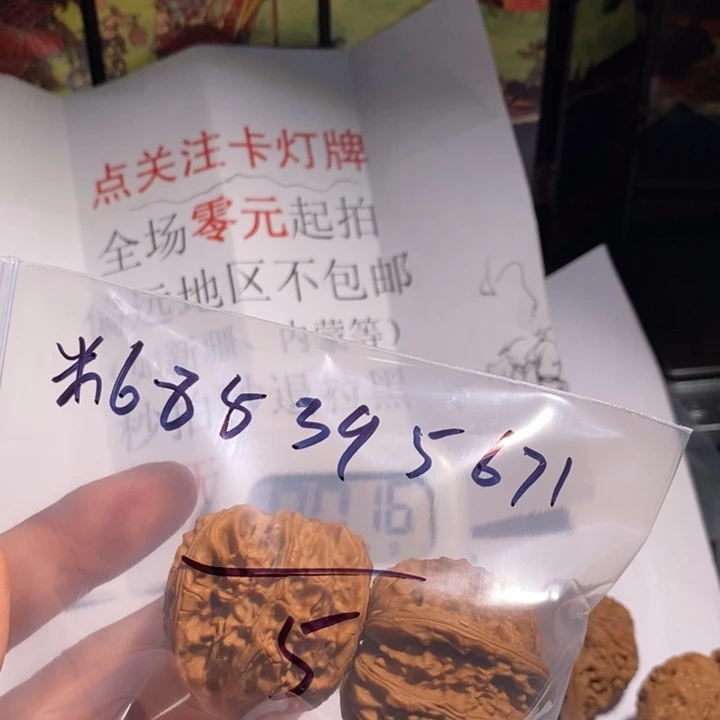 点关注卡灯牌
全场零元起拍
偏远地区不包邮
新疆、内蒙等）
秒拍 退 拉黑
米688395671
16
5